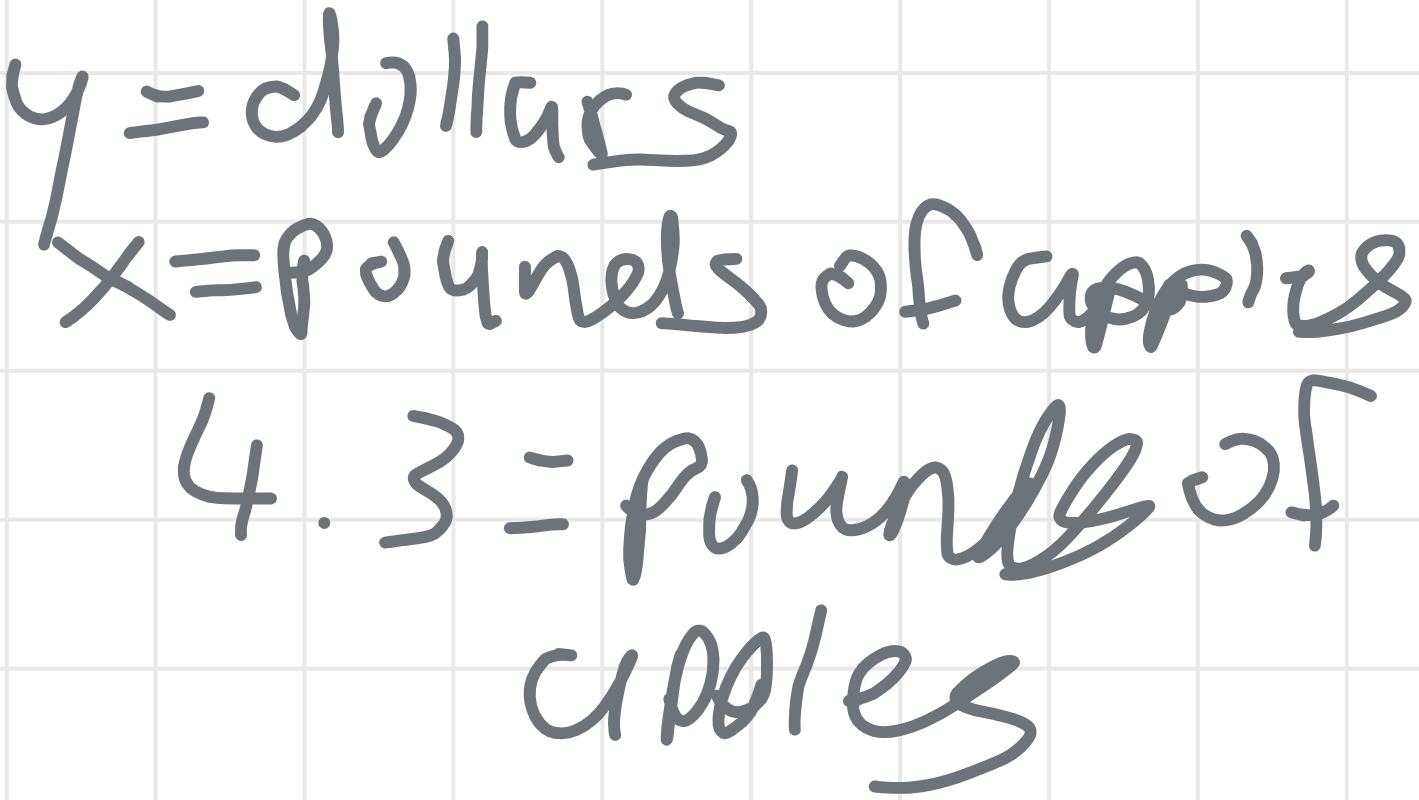 y = dollars
x = pounds of apples
4.3 = pounds of
apples